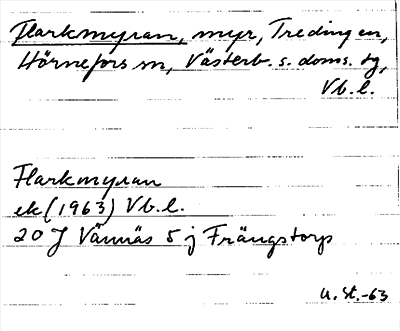 Flarkmyran, myr, Tredingen,
Hörnefors sn, Västerb. s. doms. tg,
Vb. l.
Flarkmyran
ek (1963) Vb. l.
20 J Vännäs 5 j Frängstorp
U. St. -63